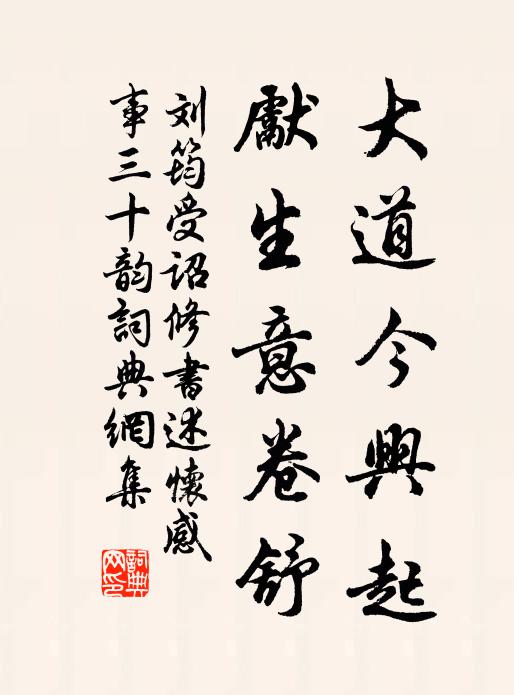 大道今興起
獻生意卷舒
刘筠受诏修書述懷感
事三十韵詞典網集
詞典
网印